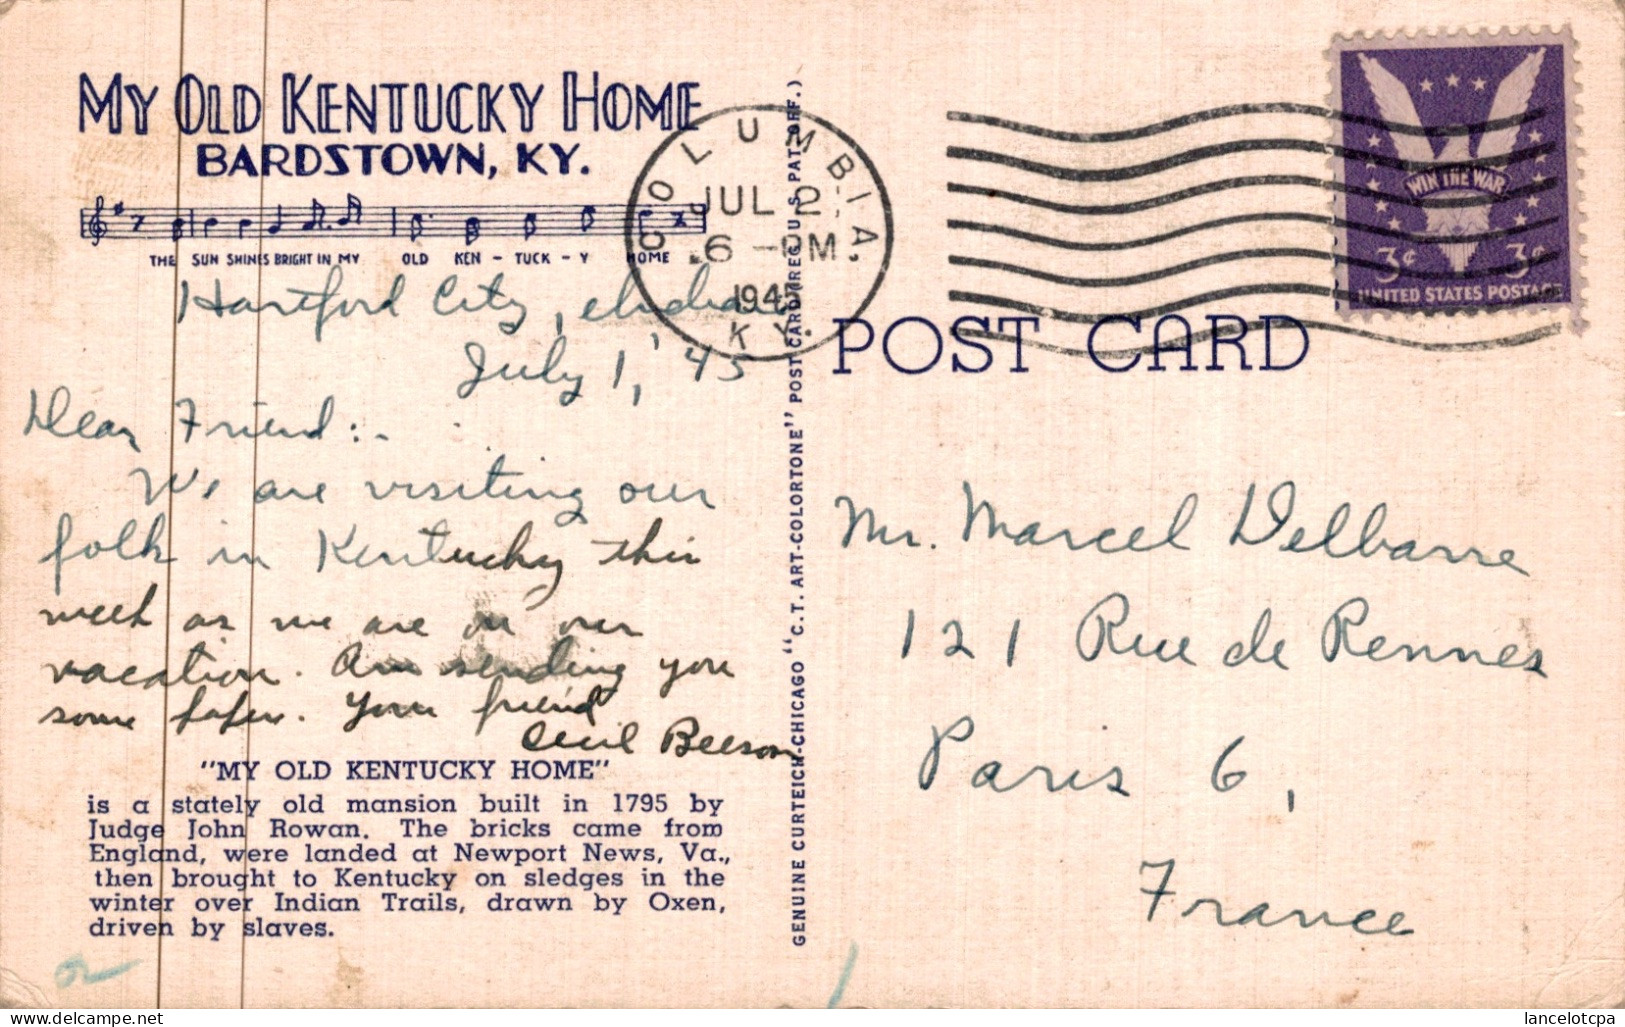 MY OLD KENTUCKY HOME
BARDSTOWN, KY.
THE SUN SHINES BRIGHT IN MY OLD KEN - TUCK - Y HOME
Hartford City, Indiana
July 1, '45
Dear Friend:-
We are visiting our
folk in Kentucky this
week as we are on our
vacation. Am sending you
some papers. Your friend
Cecil Beeson
"MY OLD KENTUCKY HOME"
is a stately old mansion built in 1795 by
Judge John Rowan. The bricks came from
England, were landed at Newport News, Va.,
then brought to Kentucky on sledges in the
winter over Indian Trails, drawn by Oxen,
driven by slaves.
GENUINE CURTEICH-CHICAGO "C.T. ART-COLORTONE" POST CARD (REG. U.S. PAT. OFF.)
COLUMBIA,
JUL 2
6 -PM
1945
KY.
WIN THE WAR
3¢ 3¢
UNITED STATES POSTAGE
POST CARD
Mr. Marcel Delbarre
121 Rue de Rennes
Paris 6,
France
lancelotcpa